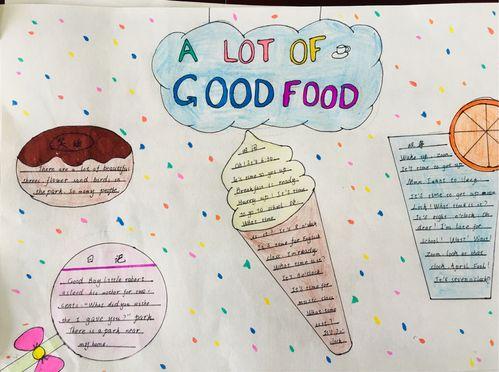 A LOT OF
GOOD FOOD
There are a lot of beautiful
trees, flower and birds in
the park. So many people.
日记
Good Boy Little robert
asked his mother for two
cents. "What did you
the I gave you?" park
There is a park near
my home.
Oh! It's 6:30.
It's time to get up.
Breakfast is ready.
Hurry up! It's time
to go to school
What time
is it? It's 8 o'clock
It's time for English
class. I'm ready.
What time is it?
It's 9 o'clock
It's time for
music class
What time
is it?
clock
Wake up, Zoom.
It's time to get up
Mum, I want to sleep
It's time to get up
Look! What time is it?
It's eight o'clock. Oh
dear! I'm late for
school! Wait! Wait
Zoom look at that
clock April Fool!
It's seven o'clock!